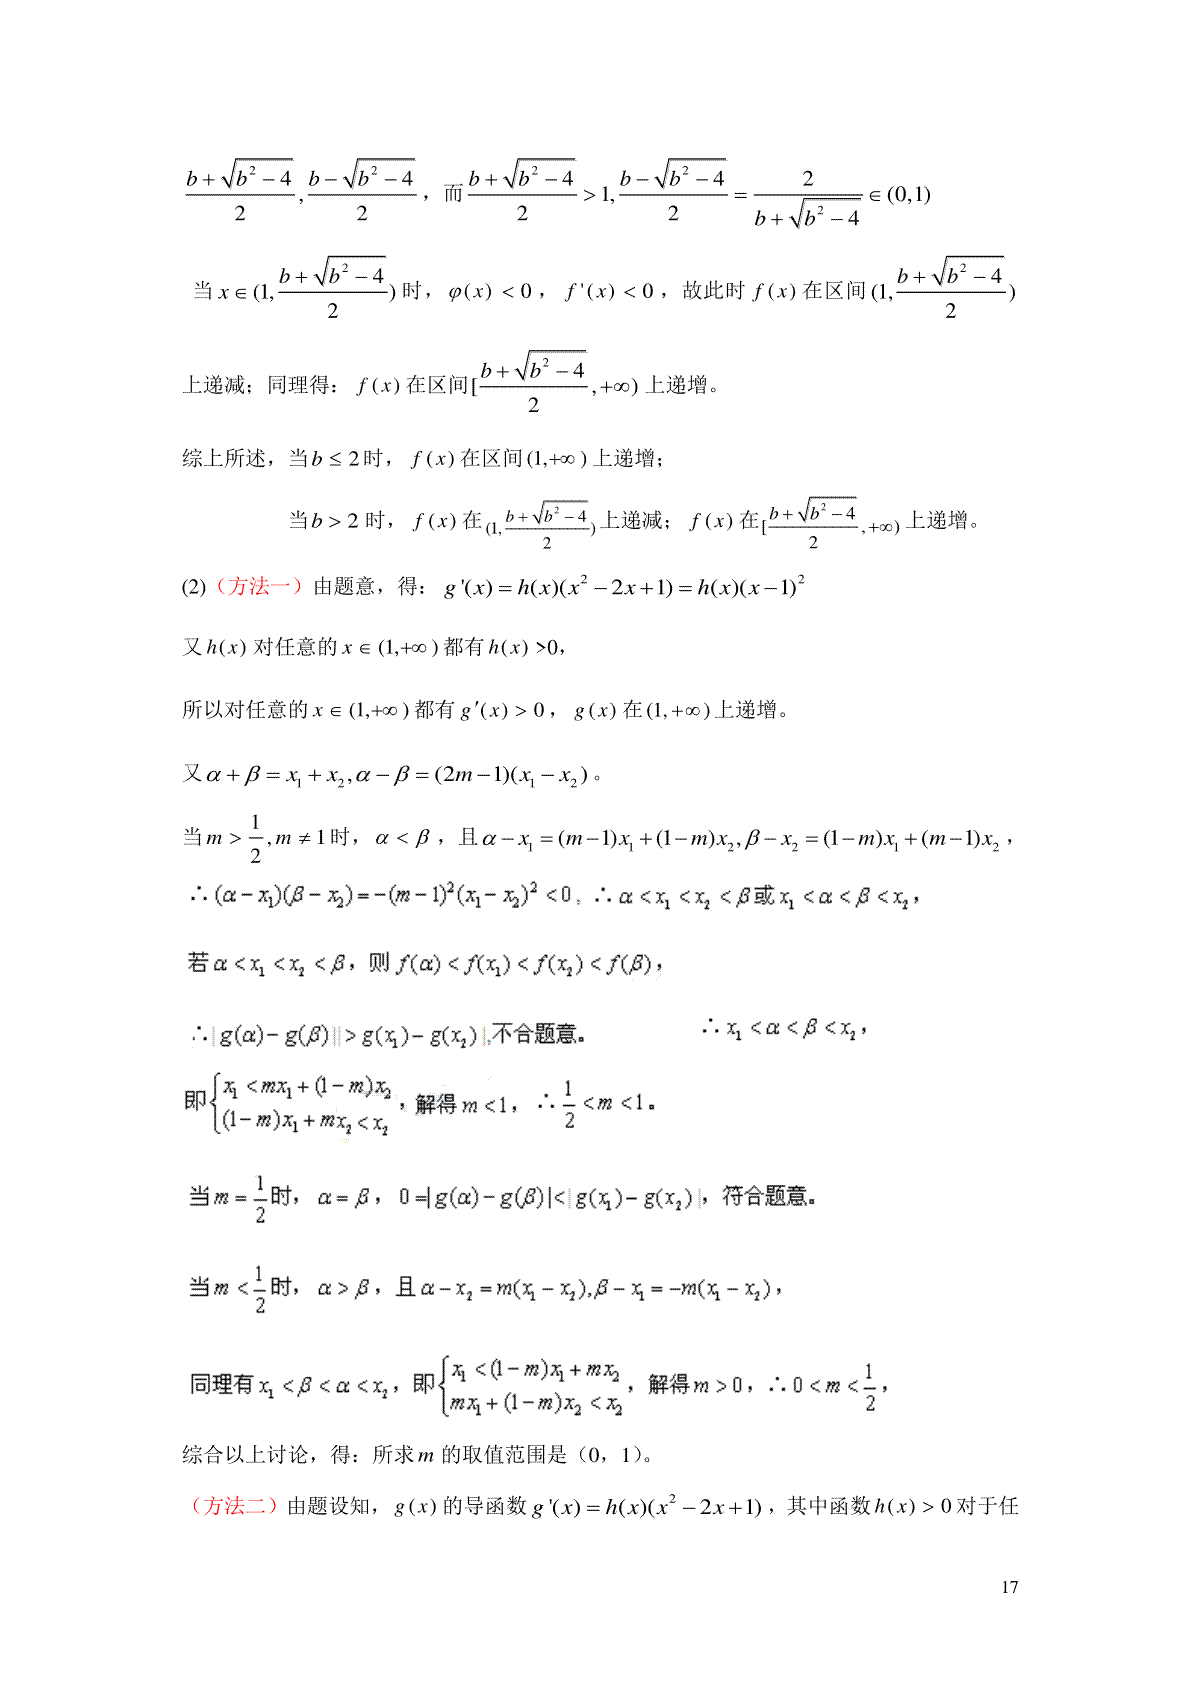 $\frac{b+\sqrt{b^2-4}}{2},\frac{b-\sqrt{b^2-4}}{2}$，而$\frac{b+\sqrt{b^2-4}}{2}>1,\frac{b-\sqrt{b^2-4}}{2}=\frac{2}{b+\sqrt{b^2-4}}\in(0,1)$
当$x\in(1,\frac{b+\sqrt{b^2-4}}{2})$时，$\varphi(x)<0$，$f'(x)<0$，故此时$f(x)$在区间$(1,\frac{b+\sqrt{b^2-4}}{2})$
上递减；同理得：$f(x)$在区间$[\frac{b+\sqrt{b^2-4}}{2},+\infty)$上递增。
综上所述，当$b\leq 2$时，$f(x)$在区间$(1,+\infty)$上递增；
当$b>2$时，$f(x)$在$(1,\frac{b+\sqrt{b^2-4}}{2})$上递减；$f(x)$在$[\frac{b+\sqrt{b^2-4}}{2},+\infty)$上递增。
(2)（方法一）由题意，得：$g'(x)=h(x)(x^2-2x+1)=h(x)(x-1)^2$
又$h(x)$对任意的$x\in(1,+\infty)$都有$h(x)$>0，
所以对任意的$x\in(1,+\infty)$都有$g'(x)>0$，$g(x)$在$(1,+\infty)$上递增。
又$\alpha+\beta=x_1+x_2,\alpha-\beta=(2m-1)(x_1-x_2)$。
当$m>\frac{1}{2},m\neq 1$时，$\alpha<\beta$，且$\alpha-x_1=(m-1)x_1+(1-m)x_2,\beta-x_2=(1-m)x_1+(m-1)x_2$，
$\therefore(\alpha-x_1)(\beta-x_2)=-(m-1)^2(x_1-x_2)^2<0$。$\therefore\alpha<x_1<x_2<\beta$或$x_1<\alpha<\beta<x_2$，
若$\alpha<x_1<x_2<\beta$，则$f(\alpha)<f(x_1)<f(x_2)<f(\beta)$，
$\therefore|g(\alpha)-g(\beta)|>|g(x_1)-g(x_2)|$,不合题意。 $\therefore x_1<\alpha<\beta<x_2$，
即$\begin{cases}x_1<mx_1+(1-m)x_2\\(1-m)x_1+mx_2<x_2\end{cases}$，解得$m<1$，$\therefore\frac{1}{2}<m<1$。
当$m=\frac{1}{2}$时，$\alpha=\beta$，$0=|g(\alpha)-g(\beta)|<|g(x_1)-g(x_2)|$，符合题意。
当$m<\frac{1}{2}$时，$\alpha>\beta$，且$\alpha-x_2=m(x_1-x_2),\beta-x_1=-m(x_1-x_2)$，
同理有$x_1<\beta<\alpha<x_2$，即$\begin{cases}x_1<(1-m)x_1+mx_2\\mx_1+(1-m)x_2<x_2\end{cases}$，解得$m>0$，$\therefore 0<m<\frac{1}{2}$，
综合以上讨论，得：所求$m$的取值范围是（0，1）。
（方法二）由题设知，$g(x)$的导函数$g'(x)=h(x)(x^2-2x+1)$，其中函数$h(x)>0$对于任
17